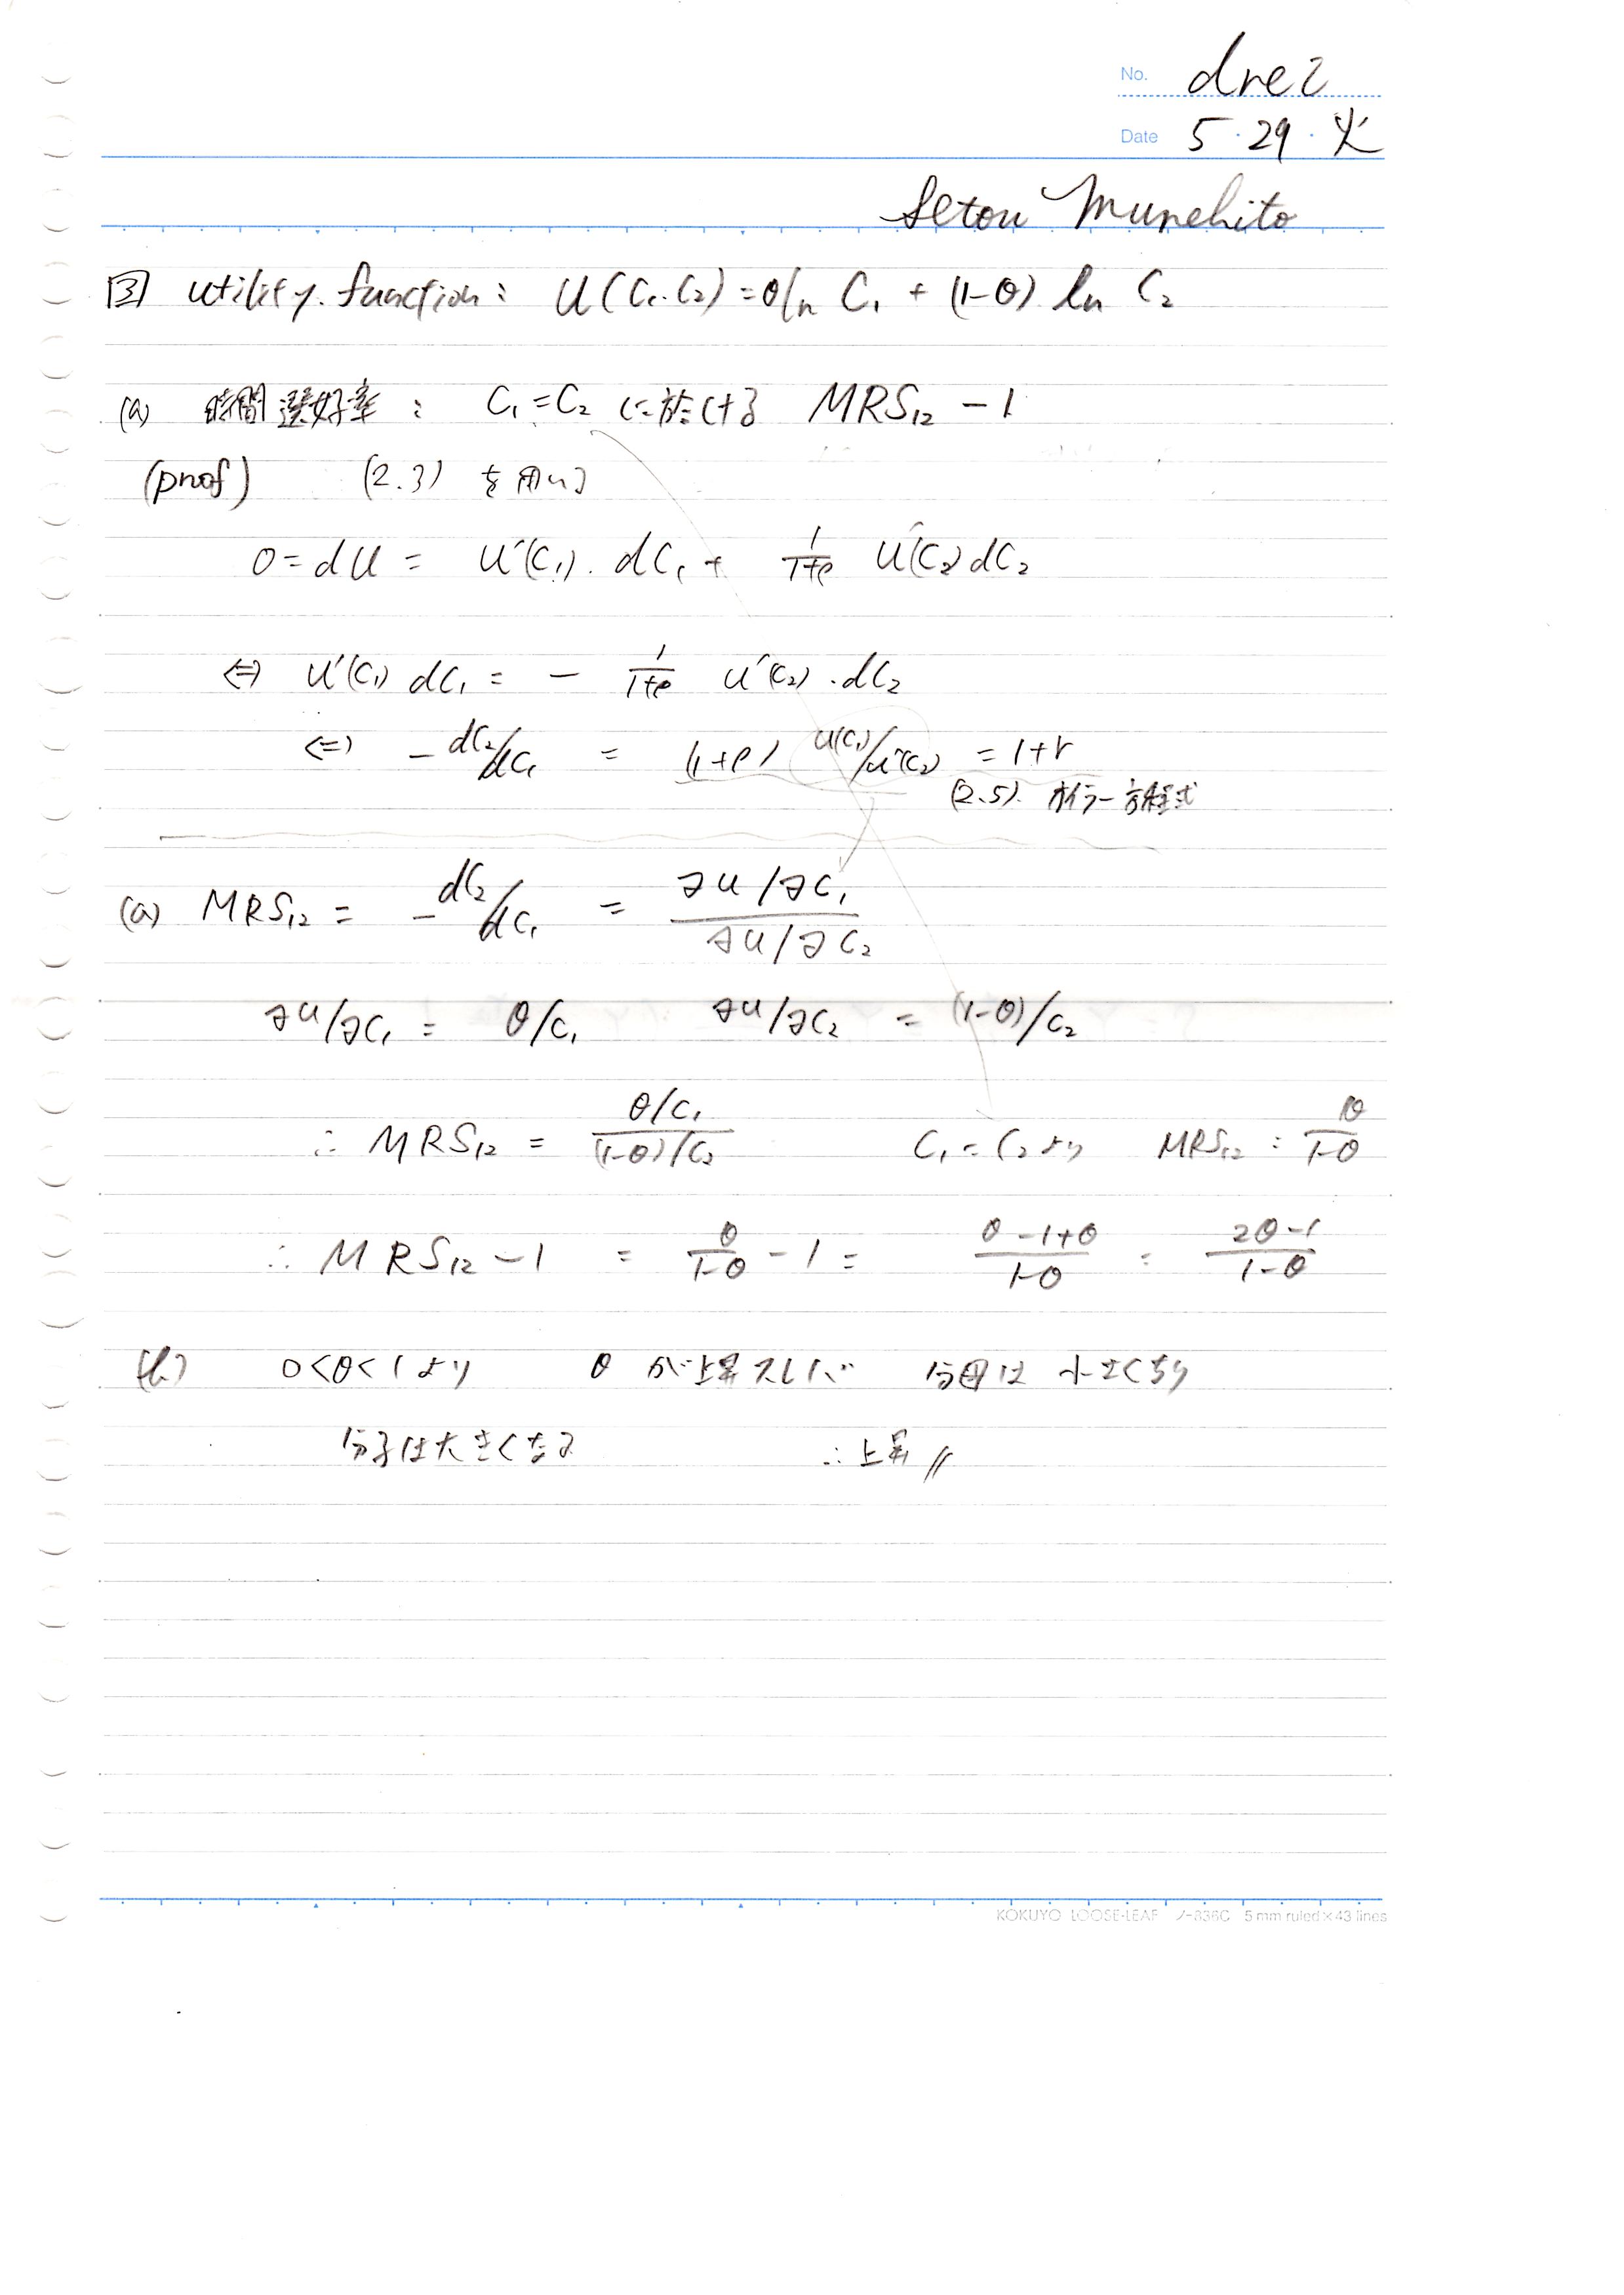 No. dre2
Date 5・29・火
Setou Munehito
[3] utility function: U(C₁.C₂)=θln C₁ + (1-θ) ln C₂
(a) 時間選好率: C₁=C₂ に於ける MRS₁₂ - 1
(proof) (2.3) を用いる
0=dU = U'(C₁). dC₁ + 1/1+ρ U'(C₂)dC₂
⇔ U'(C₁) dC₁ = - 1/1+ρ U'(C₂).dC₂
⇔ -dC₂/dC₁ = (1+ρ) U'(C₁)/U'(C₂) = 1+r
(2.5). オイラー方程式
(a) MRS₁₂ = -dC₂/dC₁ = ∂U/∂C₁ / ∂U/∂C₂
∂U/∂C₁ = θ/C₁ ∂U/∂C₂ = (1-θ)/C₂
∴ MRS₁₂ = θ/C₁ / (1-θ)/C₂ C₁=C₂より MRS₁₂ = θ/1-θ
∴ MRS₁₂ - 1 = θ/1-θ - 1 = θ-1+θ/1-θ = 2θ-1/1-θ
(b) 0<θ<1より θが上昇スレバ 分母は小さくなり
分子は大きくなる ∴上昇//
KOKUYO LOOSE-LEAF ノ-836C 5 mm ruled×43 lines